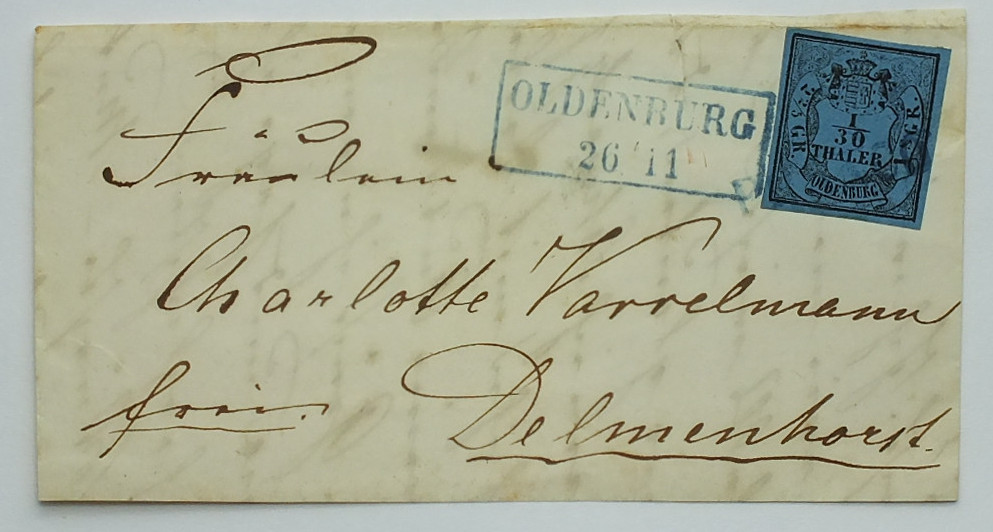 OLDENBURG
26 11
2⅖ GR.
1
30
THALER
OLDENBURG
Fräulein
Charlotte Varrelmann
frei.
Delmenhorst.